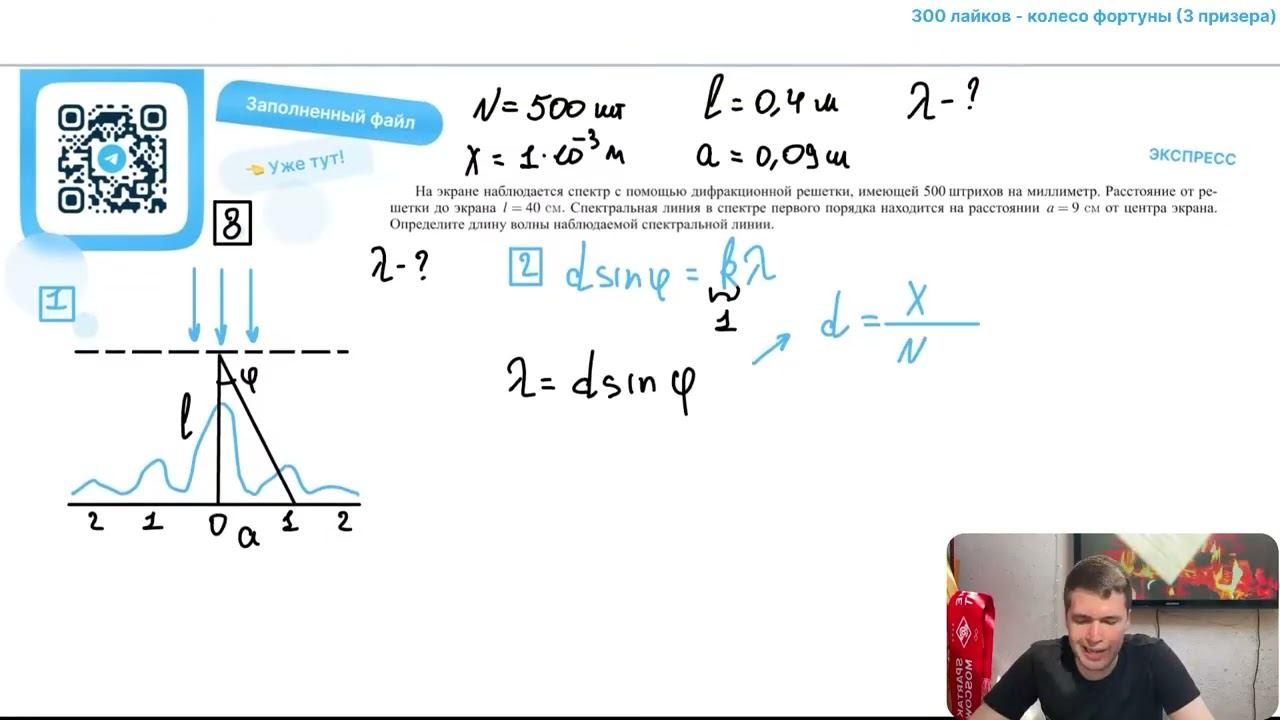 300 лайков - колесо фортуны (3 призера)
Заполненный файл
👈 Уже тут!
N = 500 шт
l = 0,4 м
λ - ?
x = 1·10⁻³ м
a = 0,09 м
ЭКСПРЕСС
На экране наблюдается спектр с помощью дифракционной решетки, имеющей 500 штрихов на миллиметр. Расстояние от ре-
шетки до экрана l = 40 см. Спектральная линия в спектре первого порядка находится на расстоянии a = 9 см от центра экрана.
Определите длину волны наблюдаемой спектральной линии.
8
λ - ?
1
φ
l
2 1 0 1 2
a
2 d sin φ = kλ
1
d = x / N
λ = d sin φ
SPARTAK
MOSCOW